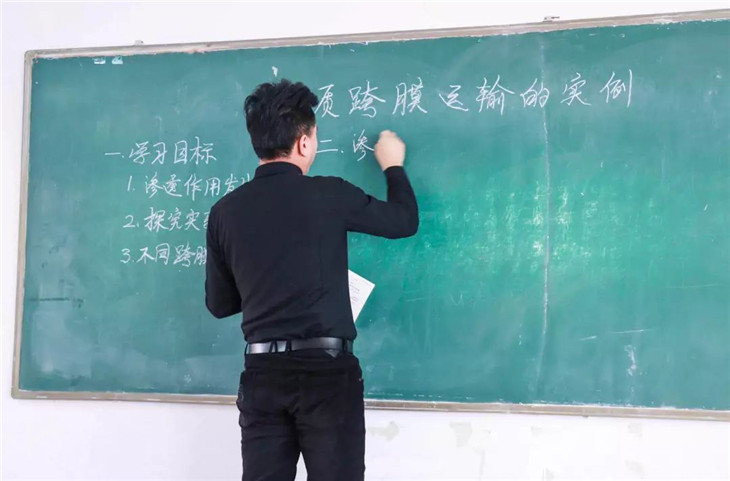 质跨膜运输的实例
一.学习目标
1.渗透作用发
2.探究实
3.不同跨膜
二.渗